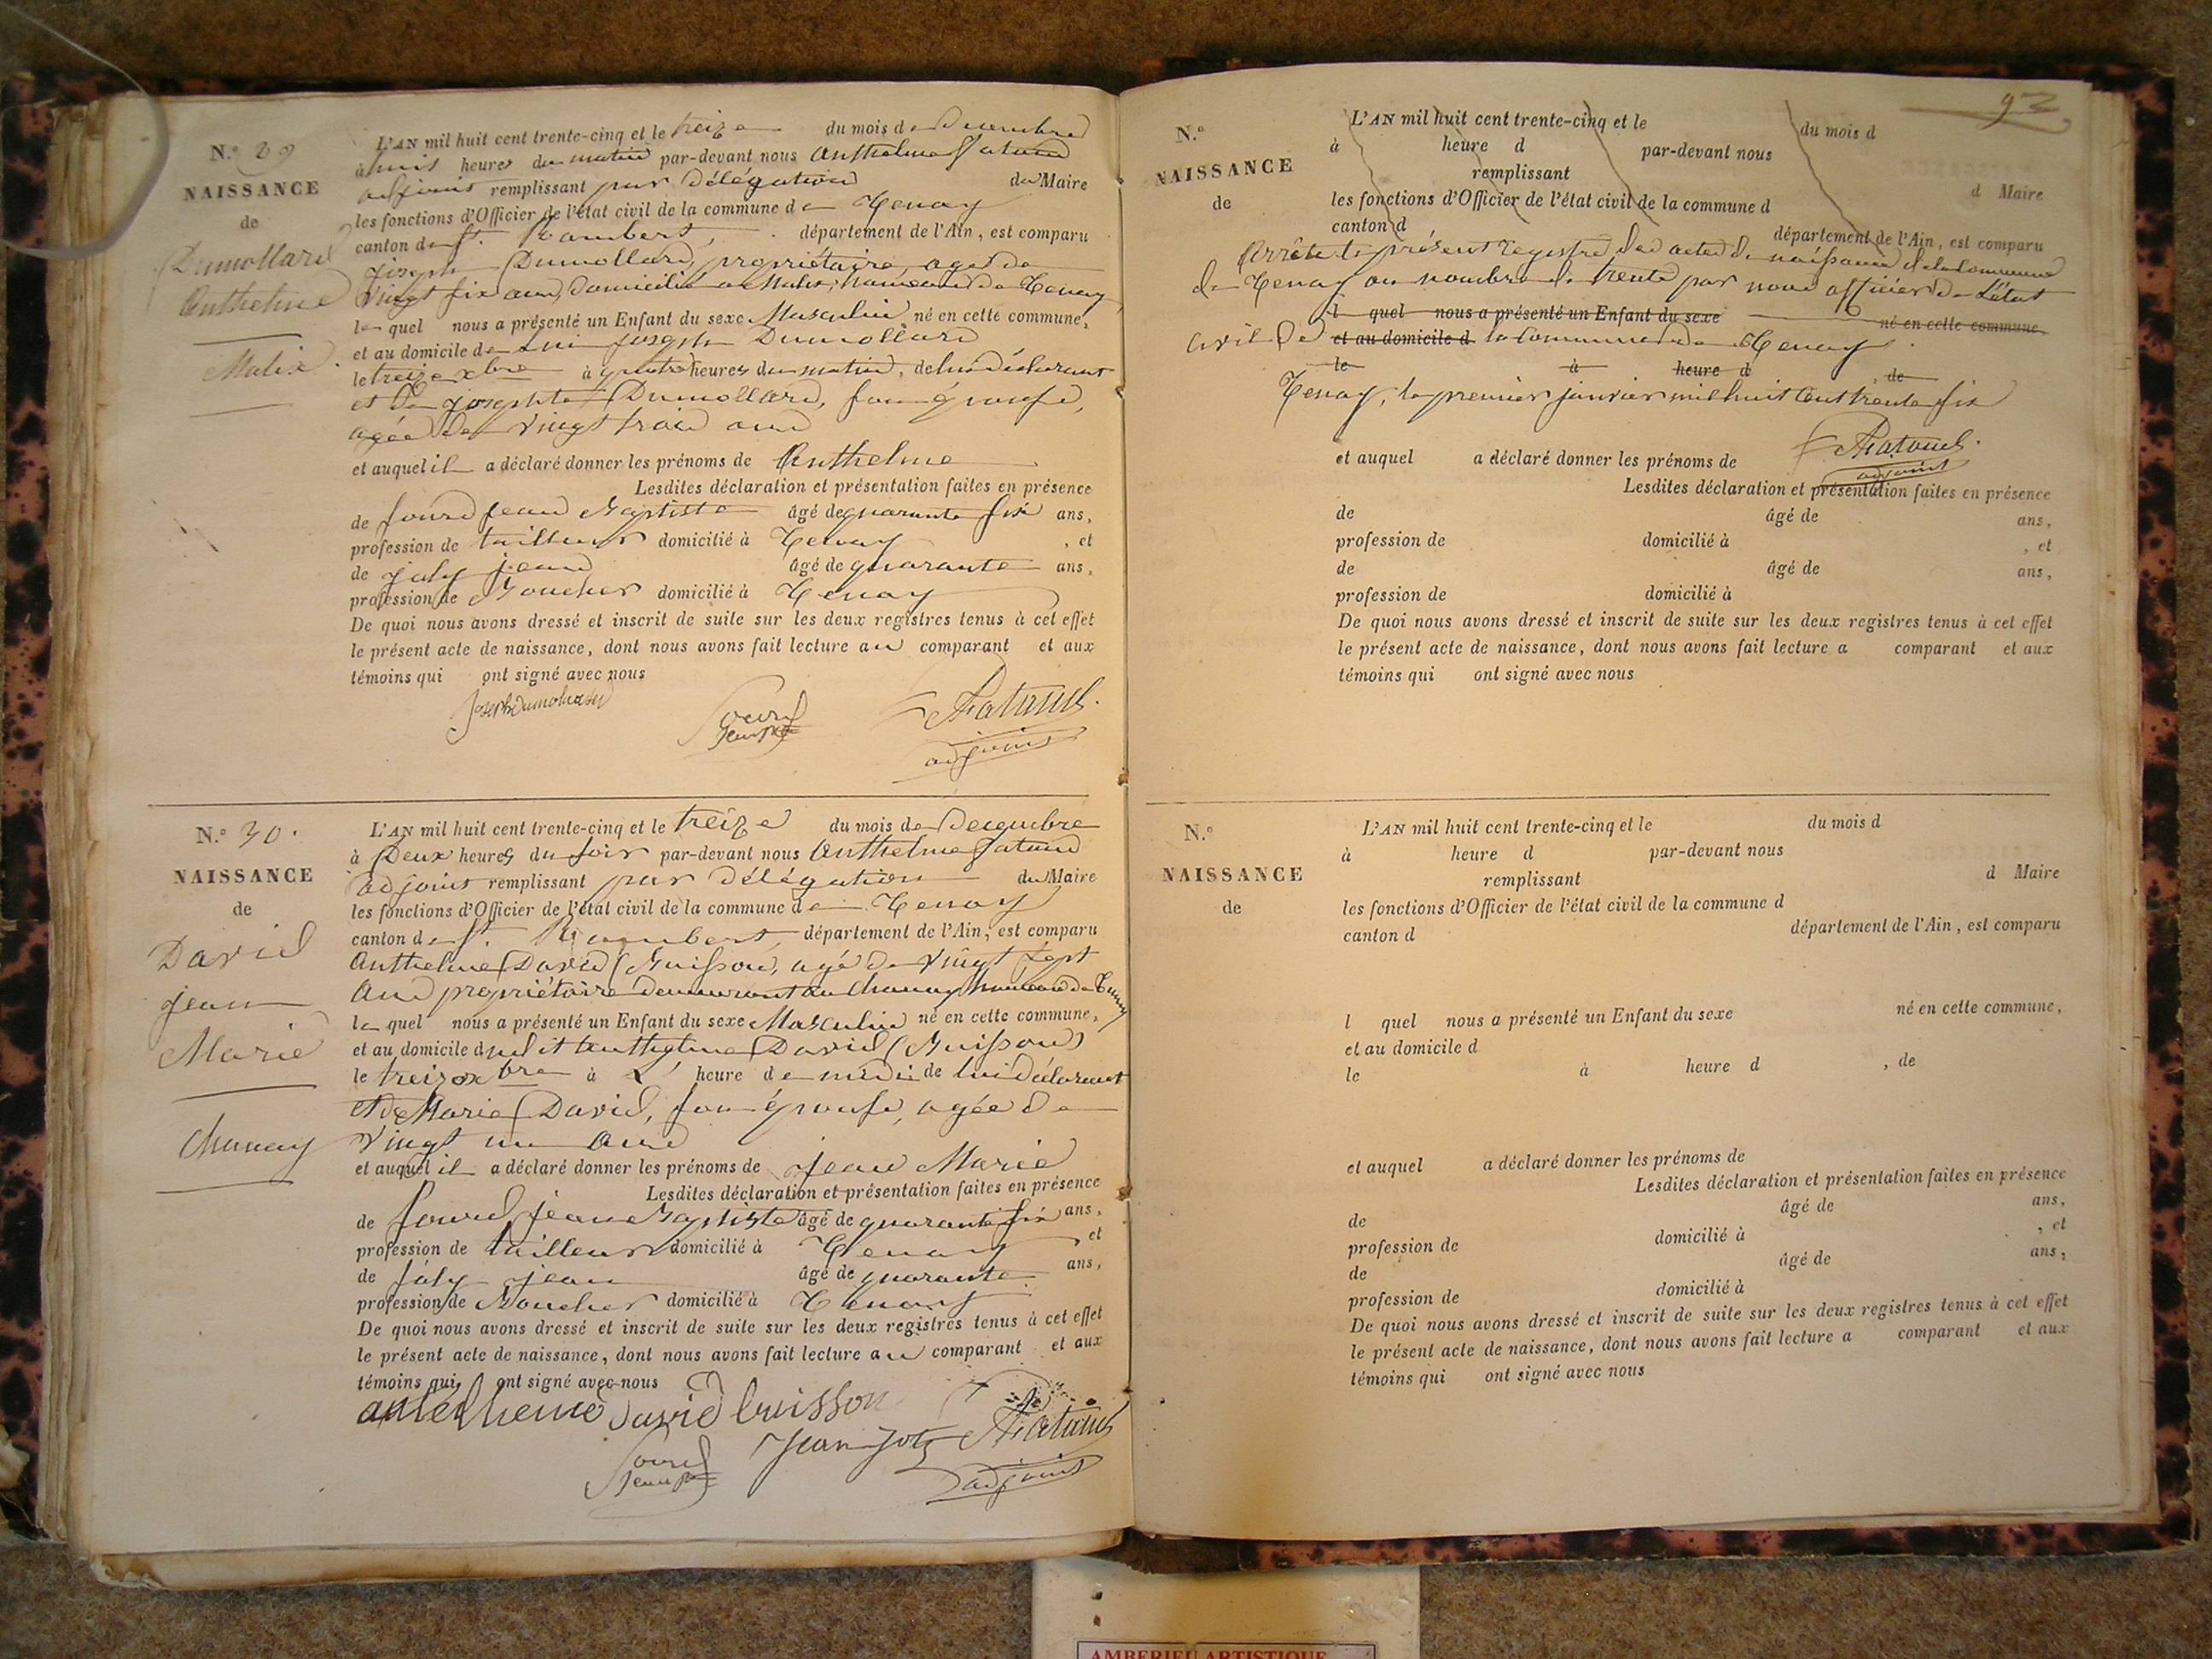 N.° 29
NAISSANCE
de
Dumollard
Anthelme
Malix
L'AN mil huit cent trente-cinq et le treize du mois de Decembre
à huit heures du matin par-devant nous Anthelme Fatoud
adjoint remplissant par délégation du Maire
les fonctions d'Officier de l'état civil de la commune de Tenay
canton de St. Rambert, département de l'Ain, est comparu
joseph Dumollard, propriétaire agé de
Vingt six ans, domicilié a Malix, hameau de Tenay
le quel nous a présenté un Enfant du sexe Masculin né en cette commune,
et au domicile de Lui joseph Dumollard
le treize xbre à quatre heures du matin, de lui déclarant
et De josephte Dumollard, son épouse,
agée de Vingt trois ans
et auquel il a déclaré donner les prénoms de Anthelme
Lesdites déclaration et présentation faites en présence
de jean Baptiste âgé de quarante six ans,
profession de tailleur domicilié à Tenay, et
de joly jean âgé de quarante ans,
profession de Boucher domicilié à Tenay
De quoi nous avons dressé et inscrit de suite sur les deux registres tenus à cet effet
le présent acte de naissance, dont nous avons fait lecture au comparant et aux
témoins qui ont signé avec nous
joseph dumollard
adjoint
N.° 30.
NAISSANCE
de
David
jean
Marie
Chanay
L'AN mil huit cent trente-cinq et le treize du mois de Decembre
à Deux heures du soir par-devant nous Anthelme Fatoud
adjoint remplissant par délégation du Maire
les fonctions d'Officier de l'état civil de la commune de Tenay
canton de St. Rambert, département de l'Ain, est comparu
Anthelme David Buisson, agé de Vingt sept
ans propriétaire demeurant au Chanay hameau de Tenay
le quel nous a présenté un Enfant du sexe Masculin né en cette commune,
et au domicile dudit Anthelme David (Buisson)
le treize xbre à heure de midi de lui déclarant
et de Marie David, son épouse, agée de
Vingt un ans
et auquel il a déclaré donner les prénoms de jean Marie
Lesdites déclaration et présentation faites en présence
de jean Baptiste âgé de quarante six ans,
profession de tailleur domicilié à Tenay, et
de joly jean âgé de quarante ans,
profession de Boucher domicilié à Tenay
De quoi nous avons dressé et inscrit de suite sur les deux registres tenus à cet effet
le présent acte de naissance, dont nous avons fait lecture au comparant et aux
témoins qui ont signé avec nous
antelheme David buisson
Jean Joly
adjoint
92
N.°
NAISSANCE
de
L'AN mil huit cent trente-cinq et le du mois d
à heure d par-devant nous
remplissant d Maire
les fonctions d'Officier de l'état civil de la commune d
canton d département de l'Ain, est comparu
Arrêté le présent registre des actes de naissance de la Commune
de Tenay au nombre de trente par nous officier de L'état
l quel nous a présenté un Enfant du sexe né en cette commune,
civil de et au domicile d la Commune de Tenay.
le à heure d, de
Tenay, le premier janvier mil huit Cent trente six
et auquel a déclaré donner les prénoms de
adjoint
Lesdites déclaration et présentation faites en présence
de âgé de ans,
profession de domicilié à, et
de âgé de ans,
profession de domicilié à
De quoi nous avons dressé et inscrit de suite sur les deux registres tenus à cet effet
le présent acte de naissance, dont nous avons fait lecture a comparant et aux
témoins qui ont signé avec nous
N.°
NAISSANCE
de
L'AN mil huit cent trente-cinq et le du mois d
à heure d par-devant nous
remplissant d Maire
les fonctions d'Officier de l'état civil de la commune d
canton d département de l'Ain, est comparu
l quel nous a présenté un Enfant du sexe né en cette commune,
et au domicile d
le à heure d, de
et auquel a déclaré donner les prénoms de
Lesdites déclaration et présentation faites en présence
de âgé de ans,
profession de domicilié à, et
de âgé de ans,
profession de domicilié à
De quoi nous avons dressé et inscrit de suite sur les deux registres tenus à cet effet
le présent acte de naissance, dont nous avons fait lecture a comparant et aux
témoins qui ont signé avec nous
AMBERIEU ARTISTIQUE